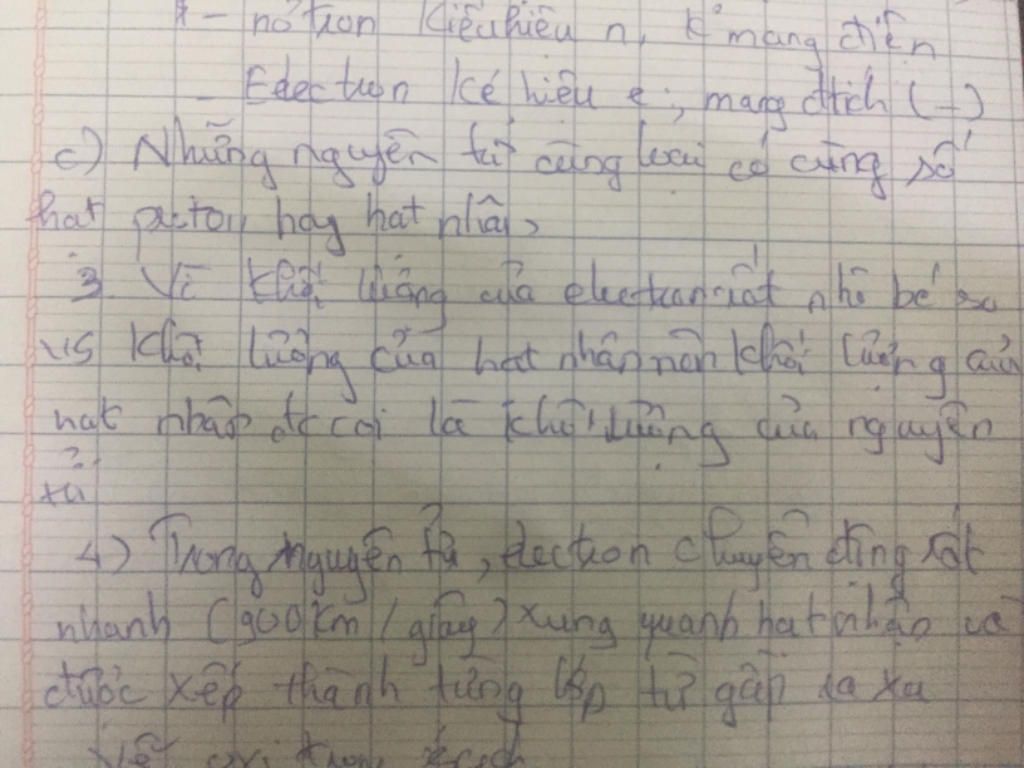 - nơtron kíêu hiệu n, k° mang điển
- Edectron ké hiệu e, mang đtích (-)
c) Những nguyên tử cùng loại có cùng số
hạt proton hay hạt nhân,
3. Vì khối lượng của electron rất nhỏ bé so
vs khối lượng của hạt nhân nên khối lượng của
hạt nhân đc coi là khối lượng của nguyên
tử
4) Trong nguyên tử, electron chuyển động rất
nhanh (900km/giây) xung quanh hạt nhân và
được xếp thành từng lớp từ gần ra xa